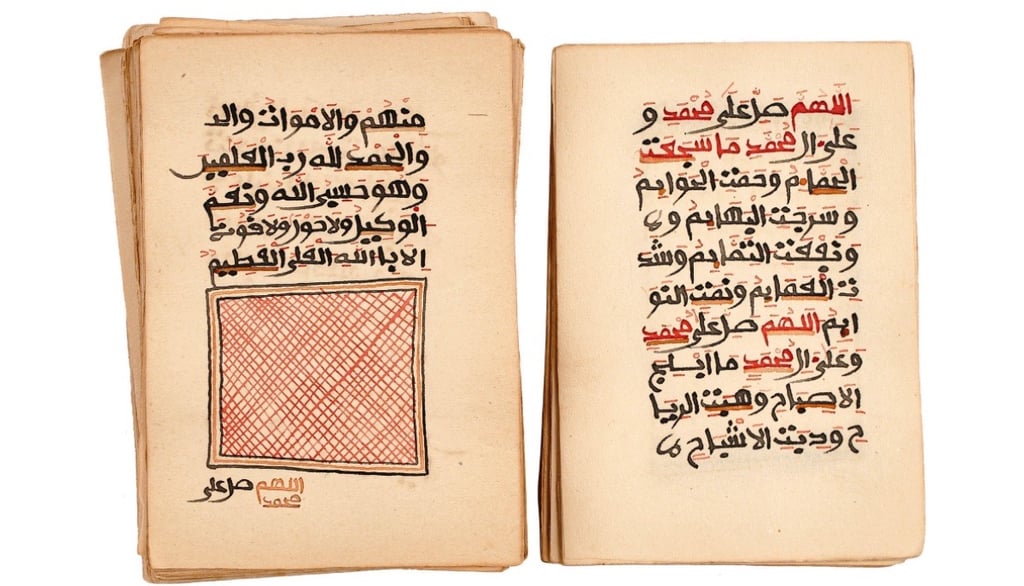 منهم والاموات والد
والحمد لله رب العلمين
وهو حسبي الله ونعم
الوكيل ولا حول ولا قوة
الا بالله العلي العظيم
اللهم صل على
محمد
اللهم صل على محمد و
على ال محمد ما سجعت
الحمايم وحمت الحوايم
وسرحت البهايم و
ونفعت التمايم وشد
ت العمايم ونمت النو
ايم اللهم صل على محمد
وعلى ال محمد ما ابلج
الاصباح وهبت الريا
ح ودبت الاشباح